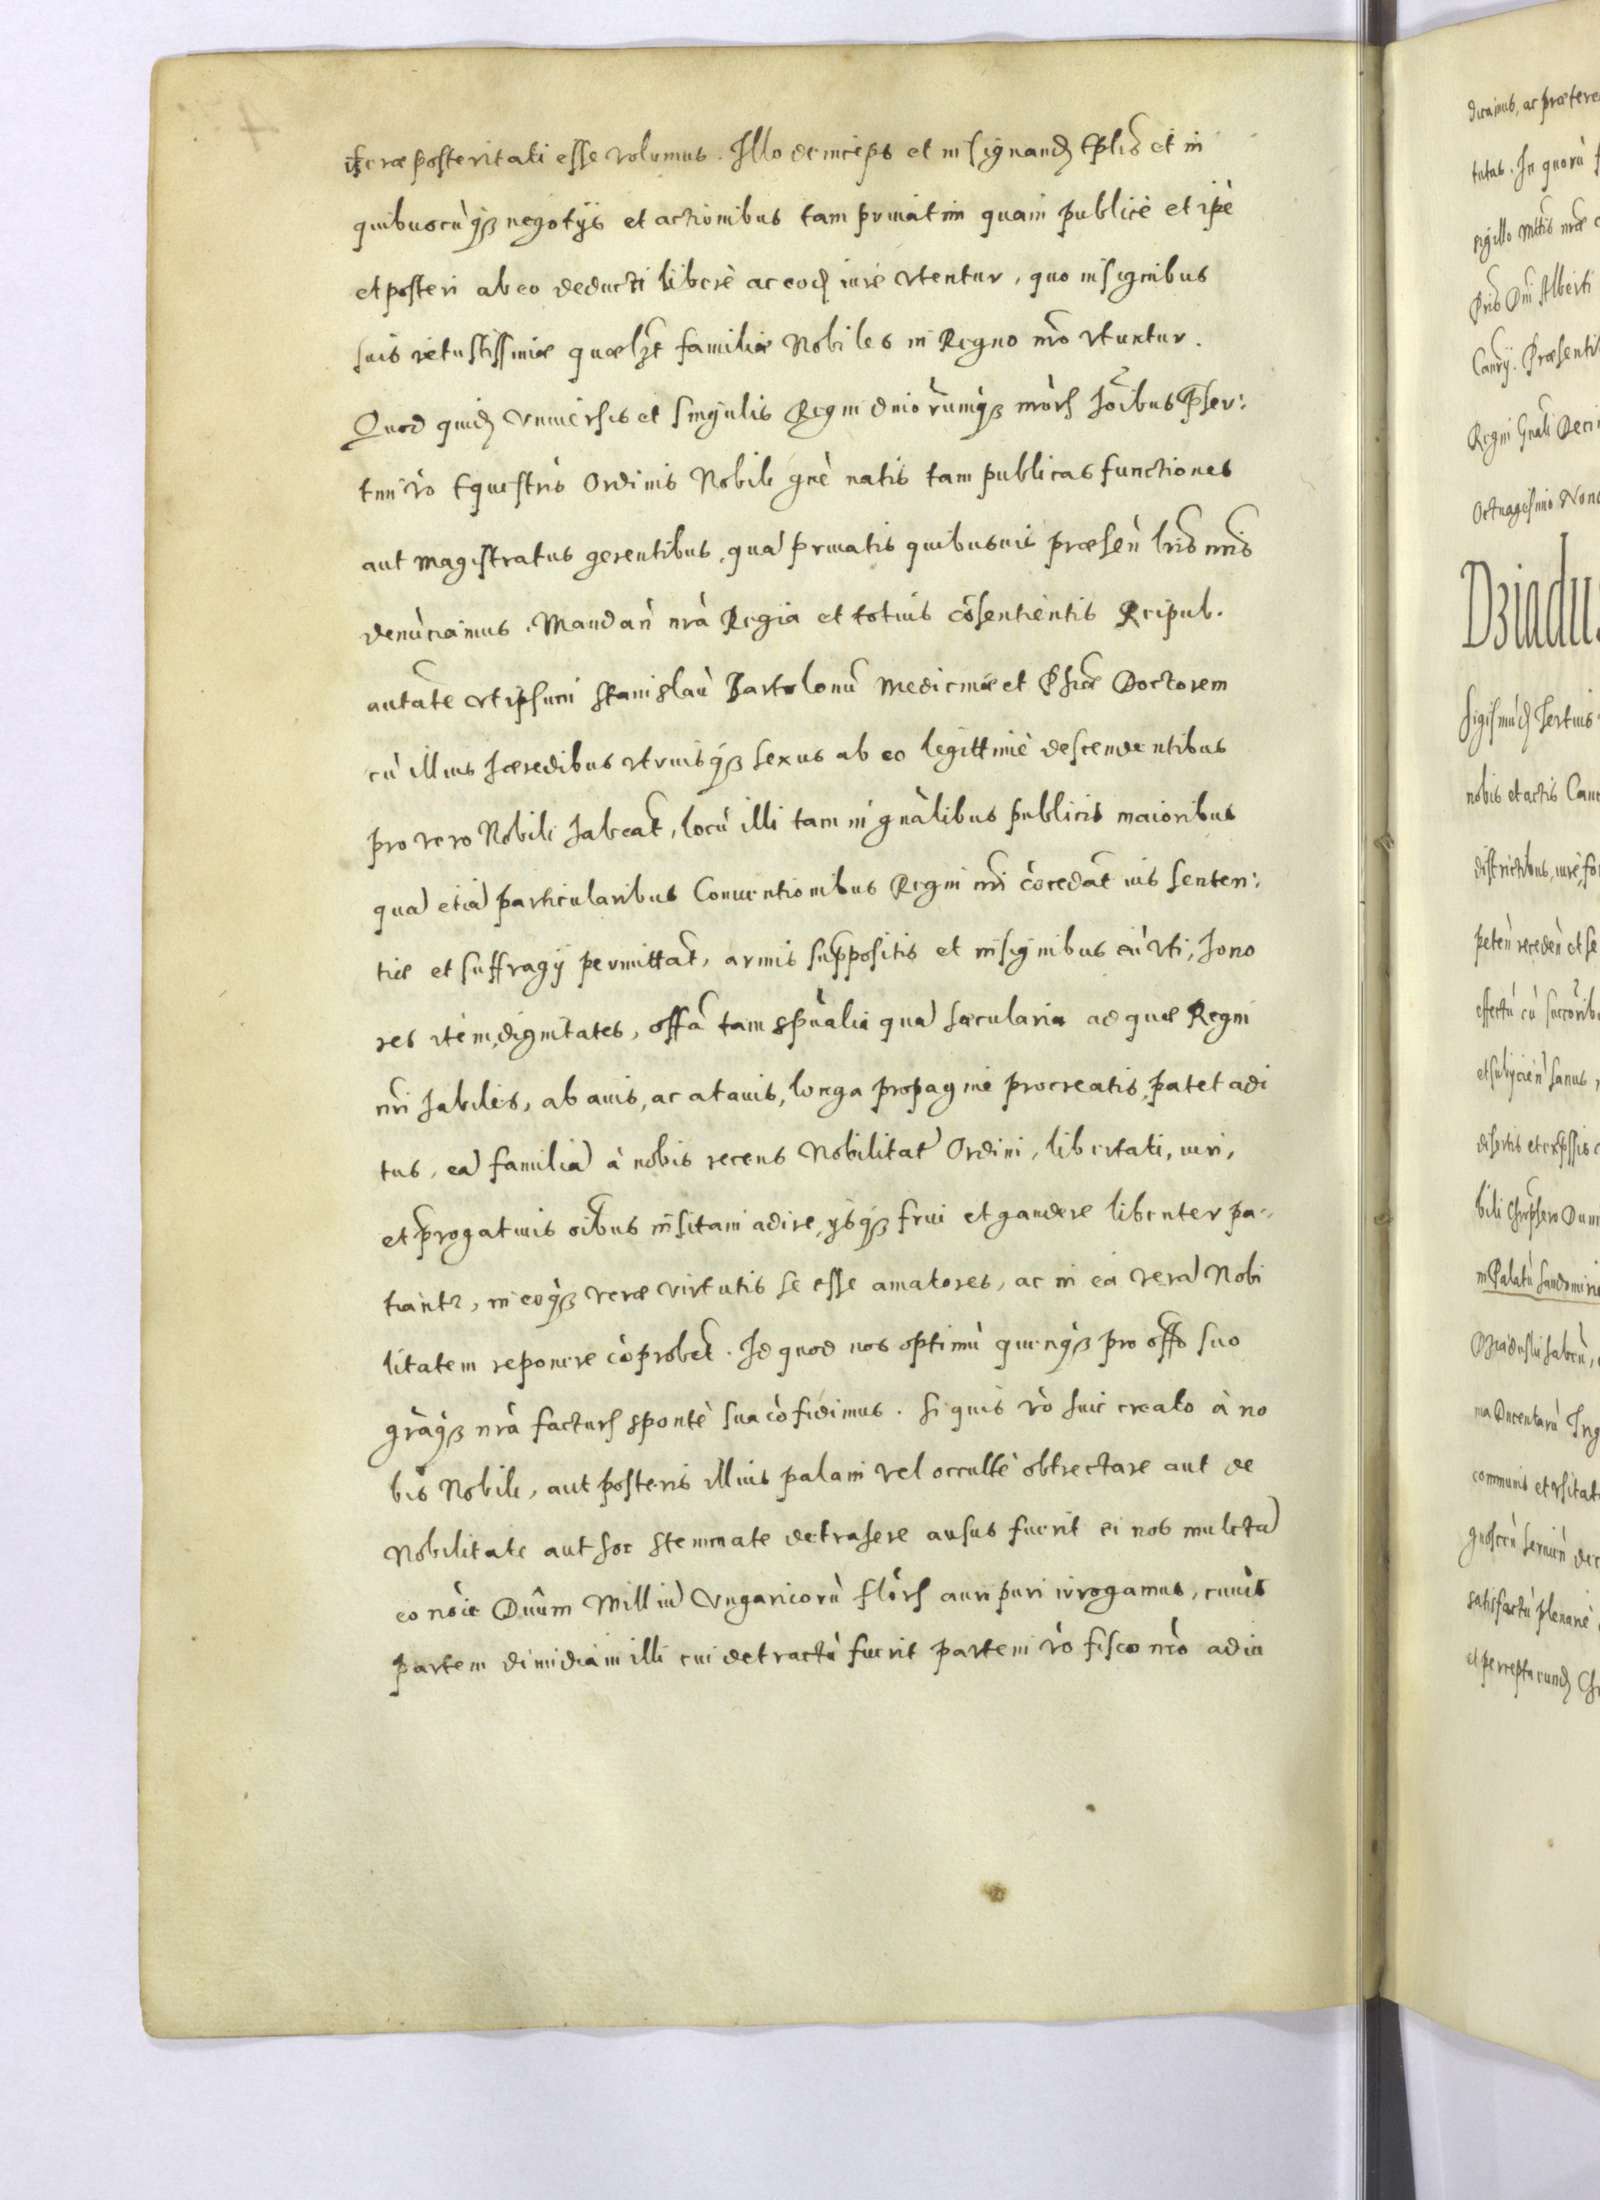 posteritati esse volumus. Illo deinceps et in signand Eplis et in
quibuscu̇q negotÿs et actionibus tam priuatim quam publicè et ipė
et posteri ab eo deducti liberè ac eod iure vtentur, quo insignibus
suis vetustissimæ quælt familiæ Nobiles in Regno nrȯ vtuntur.
Quod quid vniuersis et singulis Regni dnioru̇mq nror hoibus pser:
tim ro Equestris Ordinis Nobili gnè natis tam publicas functiones
aut Magistratus gerentibus, qua priuatis quibusuis præsen lris nris
denu̇ciamus. Mandan nrȧ Regia et totius cȯsentientis Reipub.
autate vt ipsum Stanislau̇ Bartolonu̇ Medicinæ et Phiæ Doctorem
cu̇ illius hæredibus vtriusq sexus ab eo legittimè descendentibus
pro vero Nobili habeat, locu̇ illi tam in gnȧlibus publicis maioribus
qua etia particularibus Conuentionibus Regni nri cȯcedat ius senten:
tiæ et suffragÿ permittat, armis suppositis et insignibus eu̇ vti, hono
res item, dignitates, offa tam spu̇alia qua sæcularia ad quæ Regni
nri habiles, ab auis, ac atauis, longa propagine procreatis, patet adi
tus, ea familia à nobis recens Nobilitat Ordini, libertati, iuri,
et progatiuis oibus insitam adire, ÿsq frui et gaudere libenter pa:
tiant, in eoq veræ virtutis se esse amatores, ac in ea vera Nobi
litatem reponere cȯprobet. Id quod nos optimu̇ quenq pro offo suo
grȧq nrȧ factur sponte sua cȯfidimus. Si quis rȯ huic creato à no
bis Nobili, aut posteris illius palam vel occultè obtrectare aut de
Nobilitate aut hoc stemmate detrahere ausus fuerit ei nos mulcta
eo noie Duûm Milliu Vngaricoru̇ flȯr auri puri irrogamus, cuius
partem dimidiam illi cui detractu̇ fuerit partem rȯ fisco nrȯ adiu
dicamus, ac prætere
tutas. In quoru̇
sigillo Mtis nræ
Pris Dni Alberti
Canrÿ. Præsenti
Regni Gnali Deci
Octuagesimo Nono
Dziadu
Sigismu̇d Tertius
nobis et actis Canc
districtibus, iure, fo
peten receden et se
effectu̇ cu̇ succorib
et subÿcien sanus
disertis et expssis
bili Chrpsero Dam
in Palatu̇ Sandomirie
Dziaduski
ma Ducentaru̇
communis et vsitat
gnoscen
satisfactu̇ plenariè
et percepta